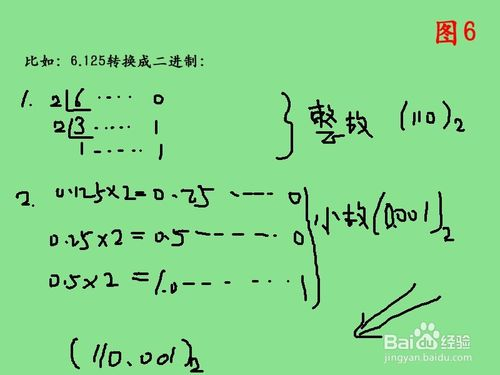 图6
比如：6.125转换成二进制：
1. 2 6 ····· 0
2 3 ····· 1
1 ----- 1
整数 (110)2
2. 0.125×2=0.25 ---- 0
0.25×2=0.5 ----- 0
0.5×2=1.0 ----- 1
小数(0.001)2
(110.001)2
Baidu经验
jingyan.baidu.com